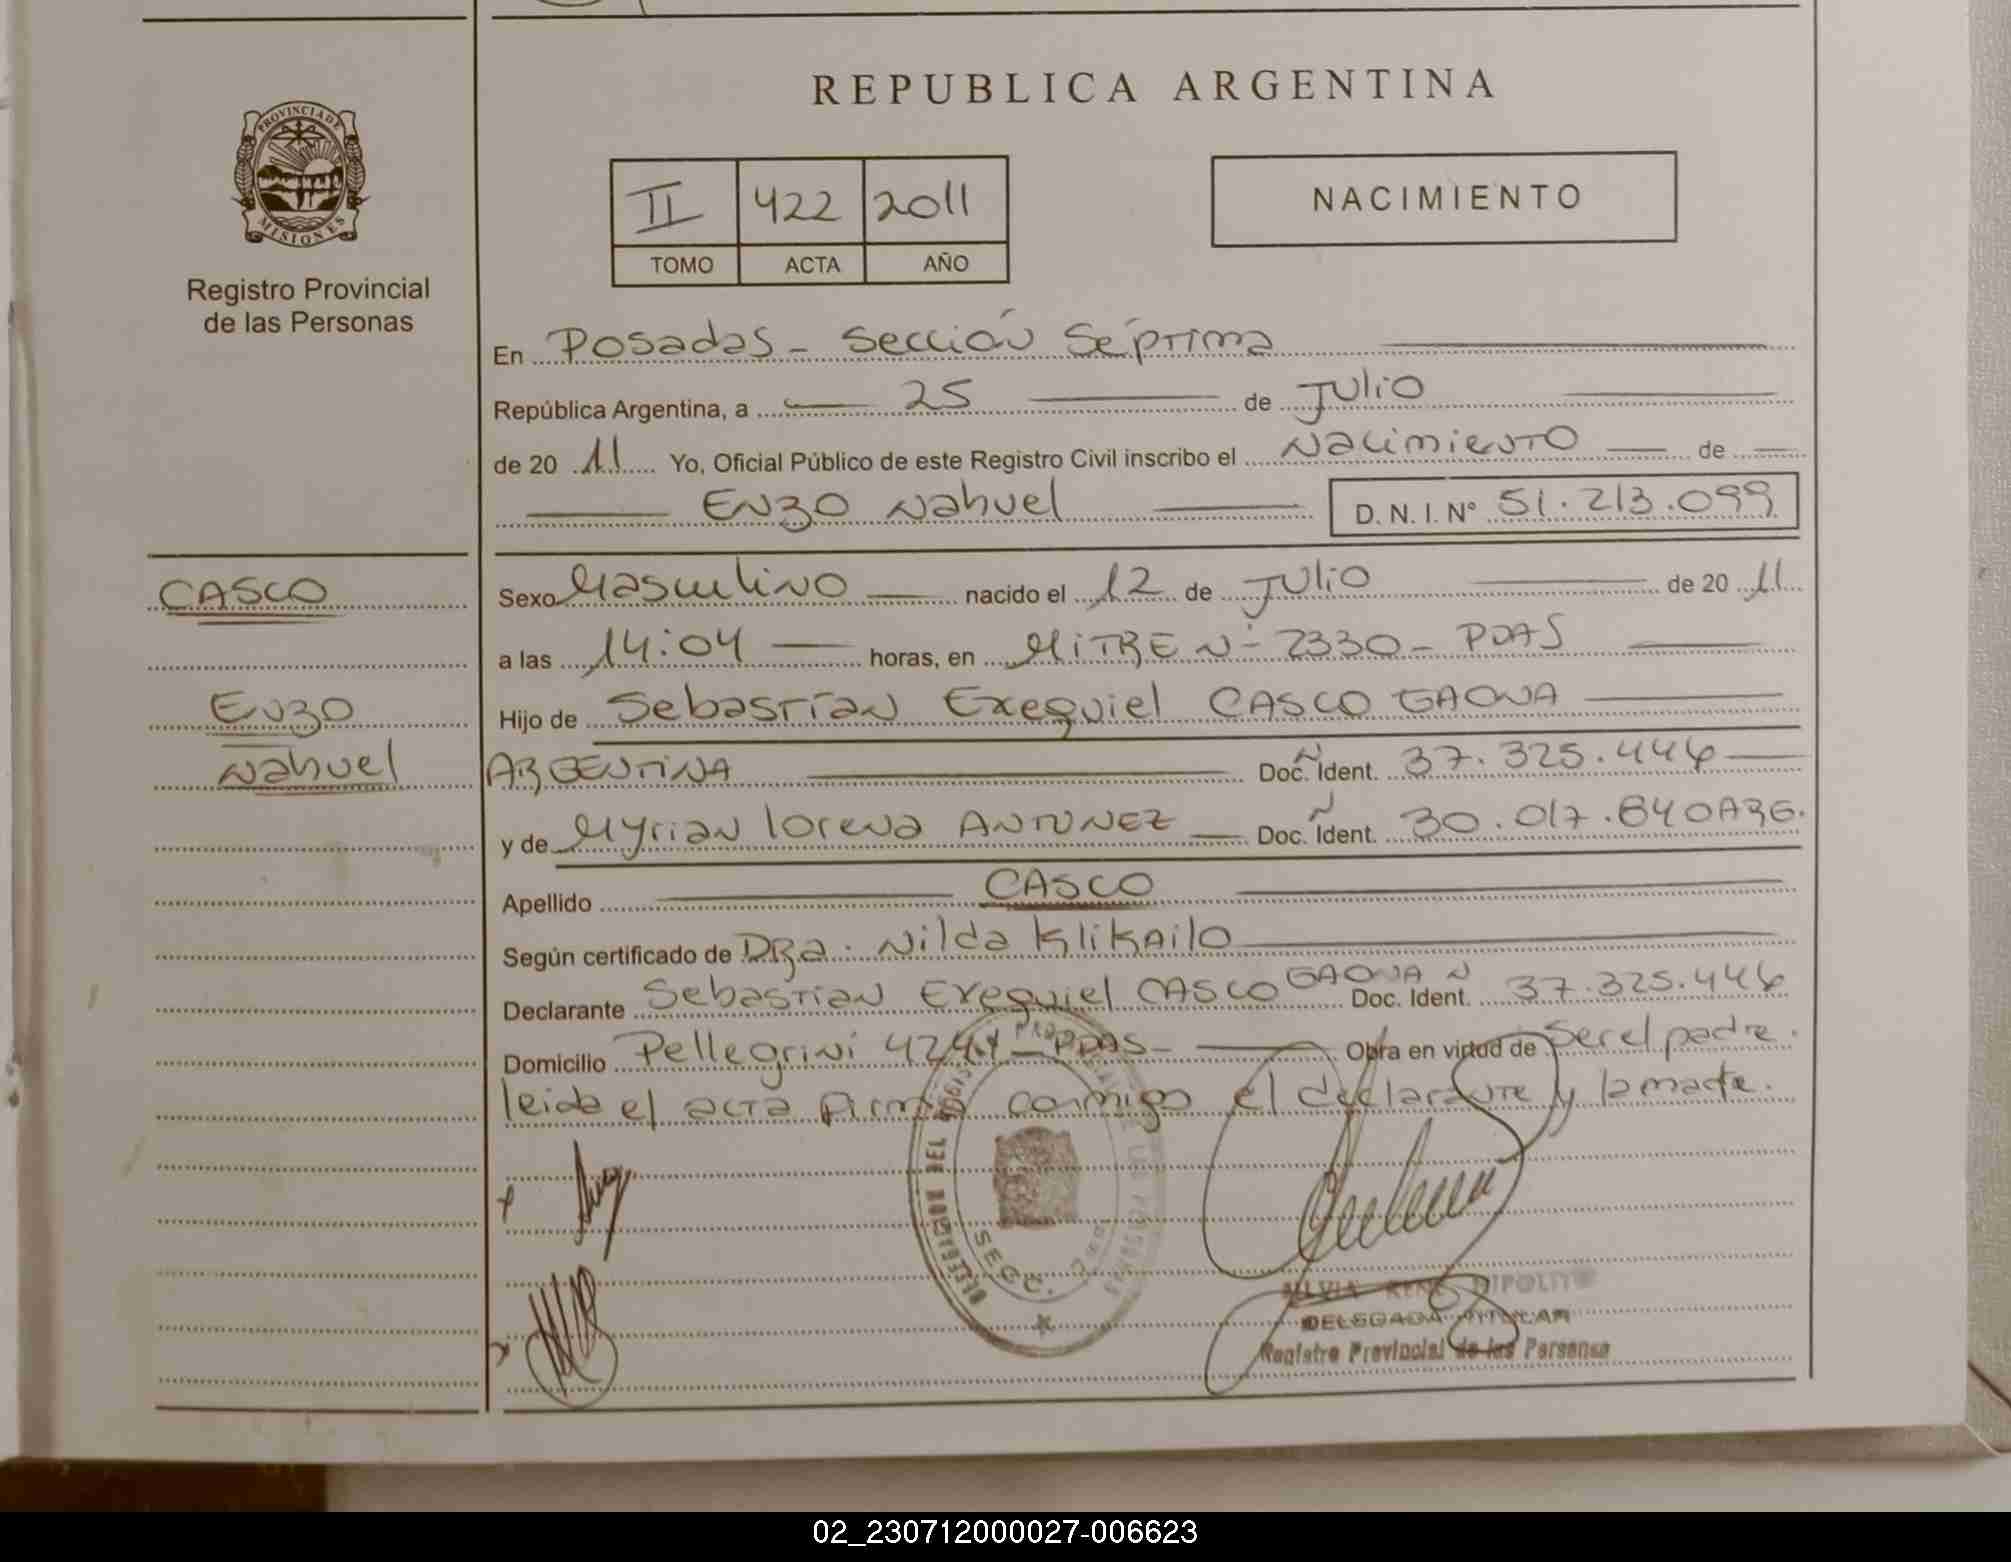 REPUBLICA ARGENTINA
PROVINCIA DE
MISIONES
Registro Provincial
de las Personas
II 422 2011
TOMO ACTA AÑO
NACIMIENTO
En Posadas - Sección Séptima
República Argentina, a 25 de Julio
de 20 11 Yo, Oficial Público de este Registro Civil inscribo el Nacimiento de
Enzo Nahuel D.N.I. N° 51.213.099
CASCO
Enzo
Nahuel
Sexo Masculino nacido el 12 de Julio de 20 11
a las 14:04 horas, en MITRE N° 2330 - PDAS
Hijo de Sebastían Exequiel CASCO GAONA
ARGENTINA Doc. Ident. 37.325.446
y de Myrian Lorena ANTUNEZ Doc. Ident. 30.017.840 ARG.
Apellido CASCO
Según certificado de DRa. Nilda Klikailo
Declarante Sebastían Exequiel CASCO GAONA Doc. Ident. 37.325.446
Domicilio Pellegrini PDAS - Obra en virtud de Ser el padre.
leida el acta firma conmigo el declarante y la madre.
SECC.
SILVIA RENE HIPOLITO
DELEGADA TITULAR
Registro Provincial de las Personas
02_230712000027-006623